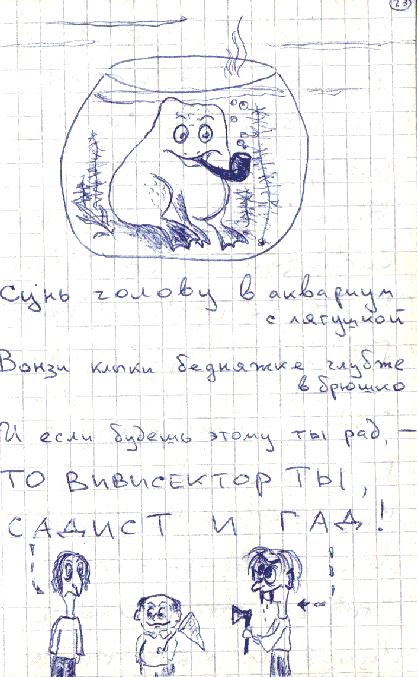 23
Сунь голову в аквариум
с лягушкой
Вонзи клыки бедняжке глубже
в брюшко
И если будешь этому ты рад, –
ТО ВИВИСЕКТОР ТЫ,
САДИСТ И ГАД!